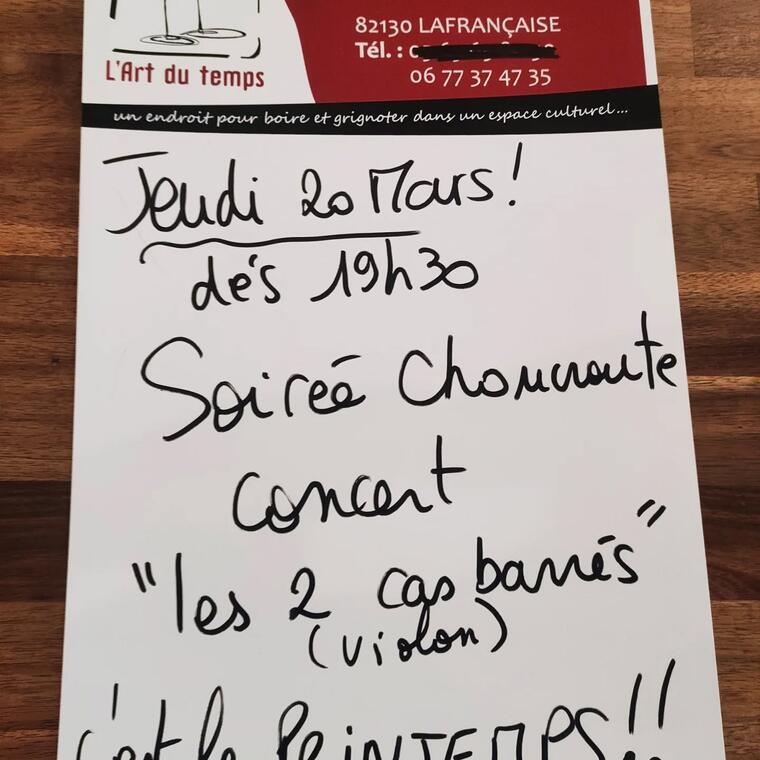 82130 LAFRANÇAISE
Tél. :
06 77 37 47 35
L'Art du temps
un endroit pour boire et grignoter dans un espace culturel...
Jeudi 20 Mars !
dés 19h30
Soireé Choucroute
concert
"les 2 cas barrés"
(violon)
c'est le PRINTEMPS !!